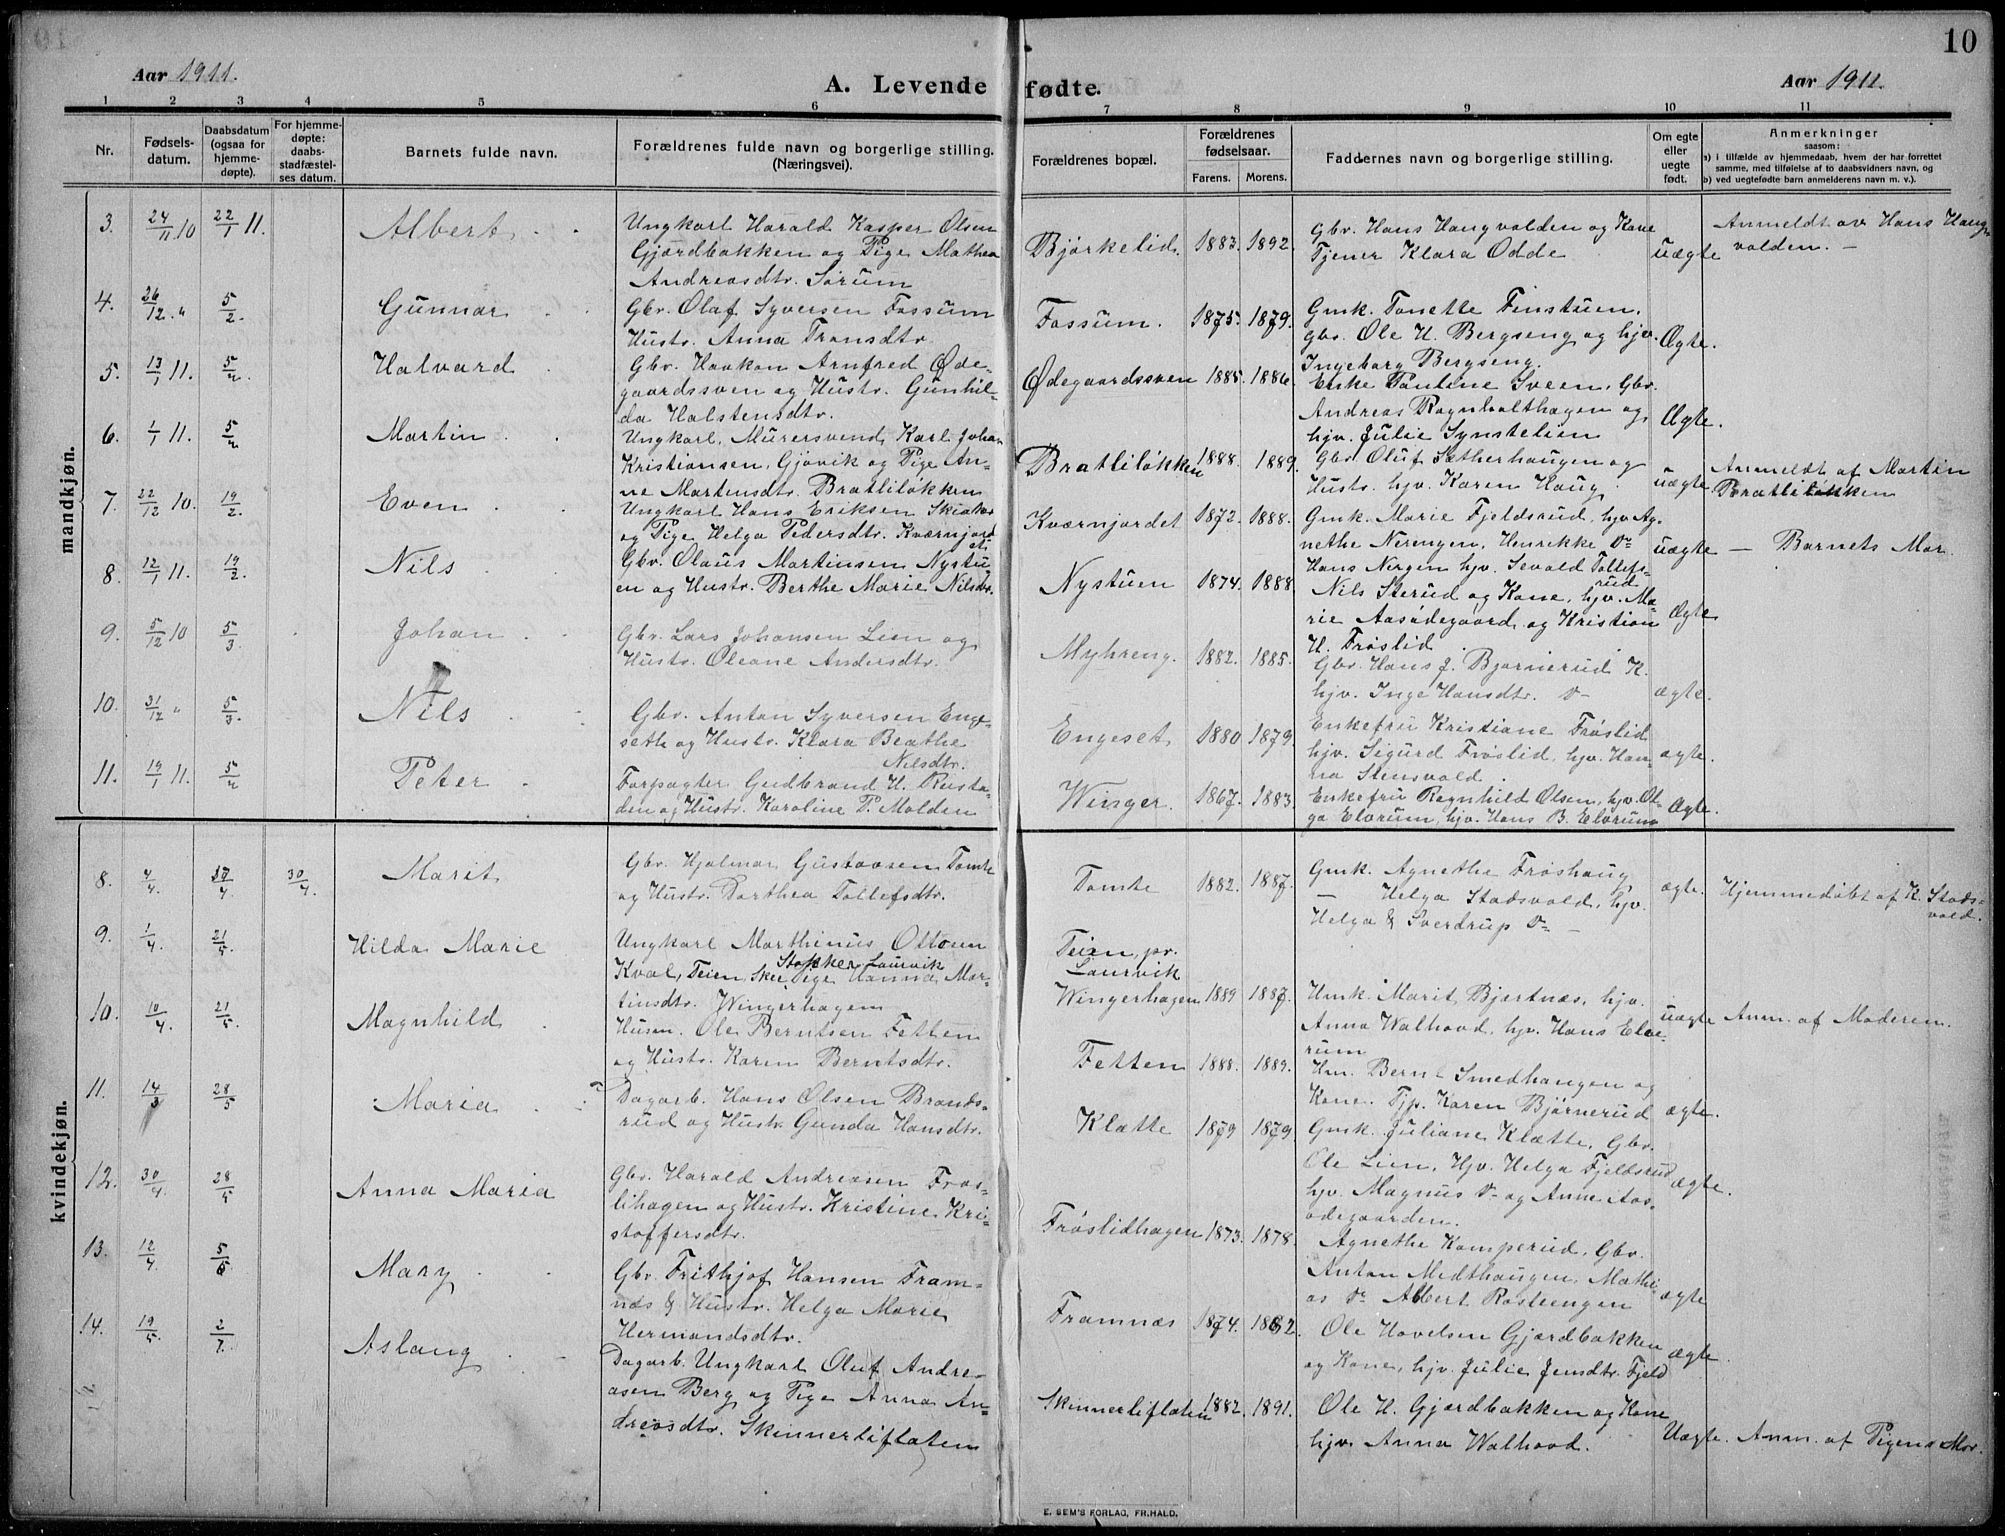 10
Aar 1911.
A. Levende fødte.
Aar 1911.
1 2 3 4 5 6 7 8 9 10 11
Nr.
Fødsels-
datum.
Daabsdatum
(ogsaa for
hjemme-
døpte).
For hjemme-
døpte:
daabs-
stadfæstel-
ses datum.
Barnets fulde navn.
Forældrenes fulde navn og borgerlige stilling.
(Næringsvei).
Forældrenes bopæl.
Forældrenes
fødselsaar.
Farens. Morens.
Faddernes navn og borgerlige stilling.
Om egte
eller
uegte
født.
Anmerkninger
saasom:
a) i tilfælde av hjemmedaab, hvem der har forrettet
samme, med tilføielse af to daabsvidners navn, og
b) ved uegtefødte barn anmelderens navn m. v.).
mandkjøn.
3. 24/11 10 22/1 11. Albert
Ungkarl Harald Kasper Olsen
Gjærdbakken og Pige Mathea
Andreasdtr. Sørum
Bjørkelid. 1883. 1892.
Gbr. Hans Haugvolden og Kone
Tjener Klara Odde
uægte
Anmeldt av Hans Haug-
volden. —
4. 26/12 " 5/2 Gunnar
Gbr. Olaf Syversen Fossum
Hustr. Anna Transdtr.
Fossum. 1875. 1879.
Gmk. Tonette Finstuen.
Gbr. Ole H. Bergseng og hjv.
Ingeborg Bergseng.
Ægte.
5. 13/1 11. 5/2 Halvard
Gbr. Haakon Arnfred Øde-
gaardssven og Hustr. Gunhil-
da Halstensdtr.
Ødegaardssven 1885. 1886.
Enke Pauline Sveen, Gbr.
Andreas Ragnhalthagen og
hjv. Julie Synstelien
Ægte.
6. 1/1 11. 5/2 Martin
Ungkarl, Murersvend Karl Johan
Kristiansen, Gjøvik og Pige An-
ne Martensdtr. Bratliløkken
Bratliløkken 1888. 1889.
Gbr Oluf Sætherhaugen og
Hustr. hjv. Karen Haug
uægte
Anmeldt af Martin
Bratliløkken
7. 22/12 10. 19/2 Even
Ungkarl Hans Eriksen Skiaker
og Pige Helga Pedersdtr. Kværnjord
et.
Kværnjordet 1872. 1888.
Gmk. Marie Fjeldsrud, hjv. Ag-
nethe Nerengen, Henrikke Do
Hans Nirgen hjv. Sevald Tollefs-
rud
uægte — Barnets Mor.
8. 12/1 11. 19/2 Nils
Gbr. Olaus Martinsen Nystu-
en og Hustr. Berthe Marie Nilsdtr.
Nystuen 1874. 1888
Nils Sterud og Kone, hjv. Ma-
rie Aasødegaard og Kristian
H. Frøslid
Ægte
9. 5/12 10 5/3 Johan
Gbr. Lars Johansen Lien og
Hustr. Oleane Andersdtr.
Myhreng. 1882. 1885.
Gbr. Hans J. Bjørnerud K.
hjv. Inge Hansdtr. Do
ægte.
10. 31/12 " 5/3 Nils
Gbr. Anton Syversen Enge-
seth og Hustr. Klara Beathe
Nilsdtr.
Engeset 1880 1879.
Enkefru Kristiane Frøslid
hjv. Sigurd Frøslid, hjv. Han-
na Stensvold.
ægte.
11. 19/1 11. 5/2 Peter
Forpagter Gudbrand H. Rusta-
den og Hustr. Karoline P. Molden
Winger. 1867. 1883.
Enkefru Ragnhild Olsen, hjv. Ol-
ga Elvrum, hjv. Hans B. Elvrum
Ægte.
kvindekjøn.
8. 4/4. 17/4 30/4. Marit
Gbr. Hjalmar Gustavsen Tomte
og Hustr. Dorthea Tollefsdtr.
Tomte 1882. 1887.
Gmk. Agnethe Frøshaug
— Helga Stadsvold, hjv.
Helga & Sverdrup Do —
ægte.
Hjemmedøbt af K. Stads-
vold.
9. 1/4. 21/5 Hilda Marie
Ungkarl Marthinus Ottosen
Stokker Laurvik
Kval, Teien, Skee, Pige Hanna Mar-
tinsdtr. Wingerhagen
Teien, pr.
Laurvik
Wingerhagen 1889 1887.
Hmk. Marit Bjørtnæs, hjv.
Anna Walhovd, hjv. Hans Elve-
rum
uægte Anm. af Moderen.
10. 10/4. 21/5. Magnhild
Husm. Ole Berntsen Fetten
og Hustr. Karen Berntsdtr.
Fetten 1888. 1889.
Hm. Bernt Smedhaugen og
Kone. Tjp. Karen Bjørnerud
ægte.
11. 14/3 28/5 Maria
Dagarb. Hans Olsen Brands-
rud og Hustr Gunda Hansdtr.
Klætte 1879 1879.
Gmk. Juliane Klætte, Gbr.
Ole Lien, Hjv. Helga Fjeldsrud
hjv. Magnus Do og Anne Aas-
ødegaarden.
ægte.
12. 30/4. 28/5 Anna Maria
Gbr. Harald Andreasen Frøs-
lihagen og Hustr. Kristine Kri-
stoffersdtr.
Frøslidhagen 1873. 1878.
Agnethe Kamperud, Gbr.
Anton Medthaugen, Mathi-
as Do Albert Rosteengen
ægte
13. 12/4 5/6 Mary
Gbr. Frithjof Hansen Fram-
næs & Hustr. Helga Marie
Hermandsdtr.
Framnæs 1874. 1882.
Ole Hovelsen Gjærdbakken
og Kone, hjv. Julie Jensdtr. Fjeld
ægte.
14. 19/5. 2/7. Aslaug
Dagarb. Ungkarl Oluf Andre-
asen Berg og Pige Anna An-
dreasdtr. Skinnerliflaten
Skinnerliflaten 1882. 1891.
Ole H. Gjærdbakken og Kone
hjv. Anna Walhovd.
Uægte. Anm. af Pigens Mor.
E. SEM'S FORLAG, FR.HALD.